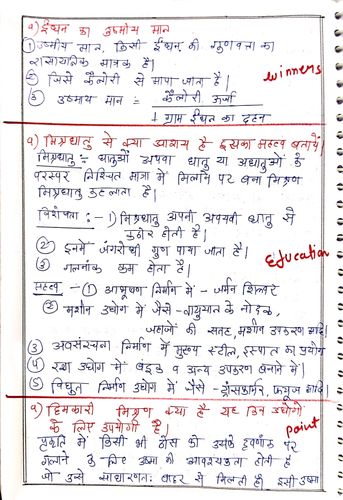 प्र) ईंधन का उष्मीय मान
① उष्मीय मान, किसी ईंधन की गुणवत्ता का
रासायनिक मात्रक है।
② जिसे कैलोरी से मापा जाता है।
winners
③ उष्मीय मान = कैलोरी ऊर्जा
1 ग्राम ईंधन का दहन
प्र) मिश्रधातु से क्या आशय है इसका महत्व बतायें।
मिश्रधातु :- धातुओं अथवा धातु या अधातुओं के
परस्पर निश्चित मात्रा में मिलाने पर बना मिश्रण
मिश्रधातु कहलाता है।
विशेषता :- 1) मिश्रधातु अपनी अवयवी धातु से
कठोर होती है।
② इनमें जंगरोधी गुण पाया जाता है।
Education
③ गलनांक कम होता है।
महत्व - ① आभूषण निर्माण में - जर्मन सिल्वर
② मशीन उद्योग में जैसे - वायुयान के
जहाजों की सतह, मशीन उपकरण आदि।
③ अवसंरचना निर्माण में मुख्य स्टील, इस्पात का प्रयोग
④ रक्षा उद्योग में व अन्य उपकरण बनाने में।
⑤ विद्युत निर्माण उद्योग में जैसे - ट्रांसफार्मर, फ्यूज आदि।
प्र) हिमकारी मिश्रण क्या है यह किन उद्योगों
के लिए उपयोगी है।
point
प्रकृति में किसी भी ठोस को उसके द्रवणांक पर
गलाने के लिए ऊष्मा की आवश्यकता होती है
जो उसे साधारणतः बाहर से मिलती है। इसी उष्मा